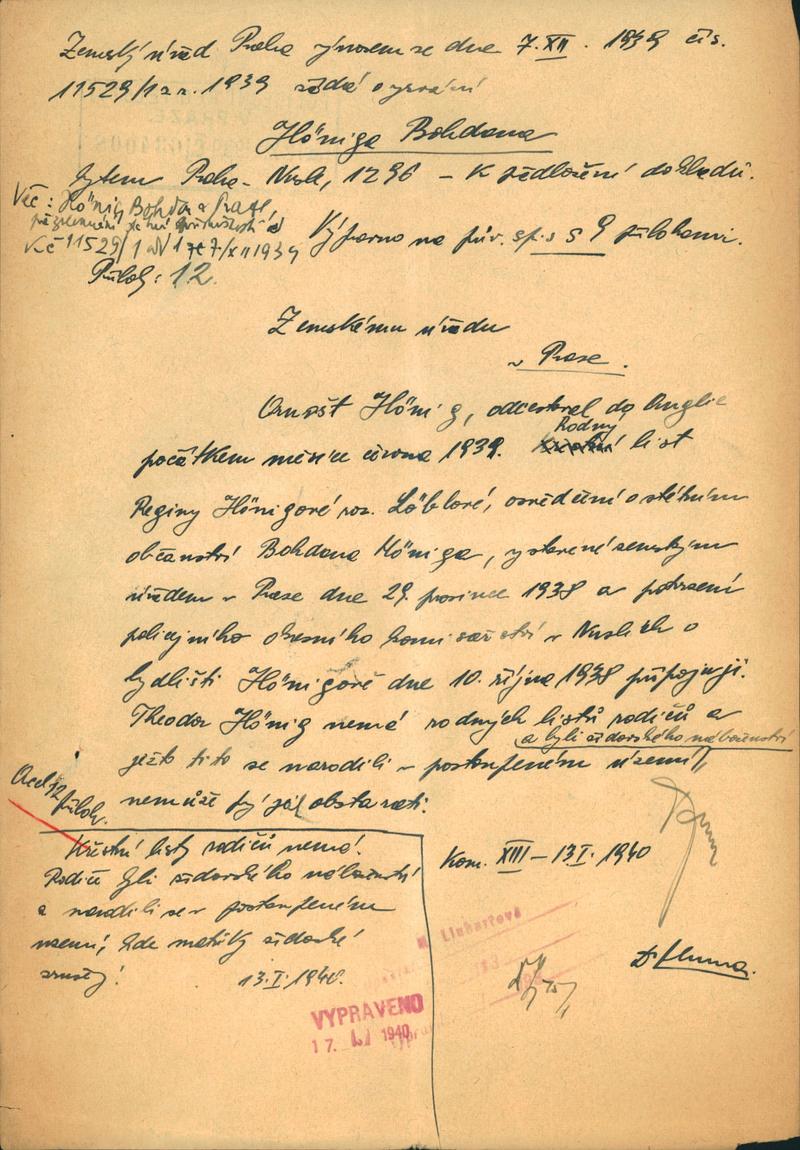 Zemský úřad Praha výnosem ze dne 7.XII. 1939 čís.
11529/1 1939 žádá o vyzvání
Höniga Bohdana
bytem Praha - Nusle, 1296 - k předložení dokladů.
Věc: Hönig Bohdan Praha,
Vypraveno na pův. sp. s 9 přílohami.
K č 11529/1 ze 7/XII 1939
Příloh: 12.
Zemskému úřadu
v Praze.
Arnošt Hönig, odcestoval do Anglie
Rodný
počátkem měsíce června 1939. list
Reginy Hönigové roz. Löblové, osvědčení o státním
občanství Bohdana Höniga, vystavené zemským
úřadem v Praze dne 29. prosince 1938 a potvrzení
policejního okresního komisařství v Nuslích o
bydlišti Hönigové dne 10. října 1938 připojuji.
Theodor Hönig nemá rodných listů rodičů a
a byli židovského náboženství
ježto tito se narodili v postoupeném území,
nemůže si je obstarati.
12 příloh.
Křestní listy rodičů nemá.
Rodiče byli židovského náboženství
a narodili se v postoupeném
území, kde matriky židovské
zrušeny!
13.I.1940.
Kom. XIII - 13.I.1940
M. Linhartová
VYPRAVENO
17. I. 1940